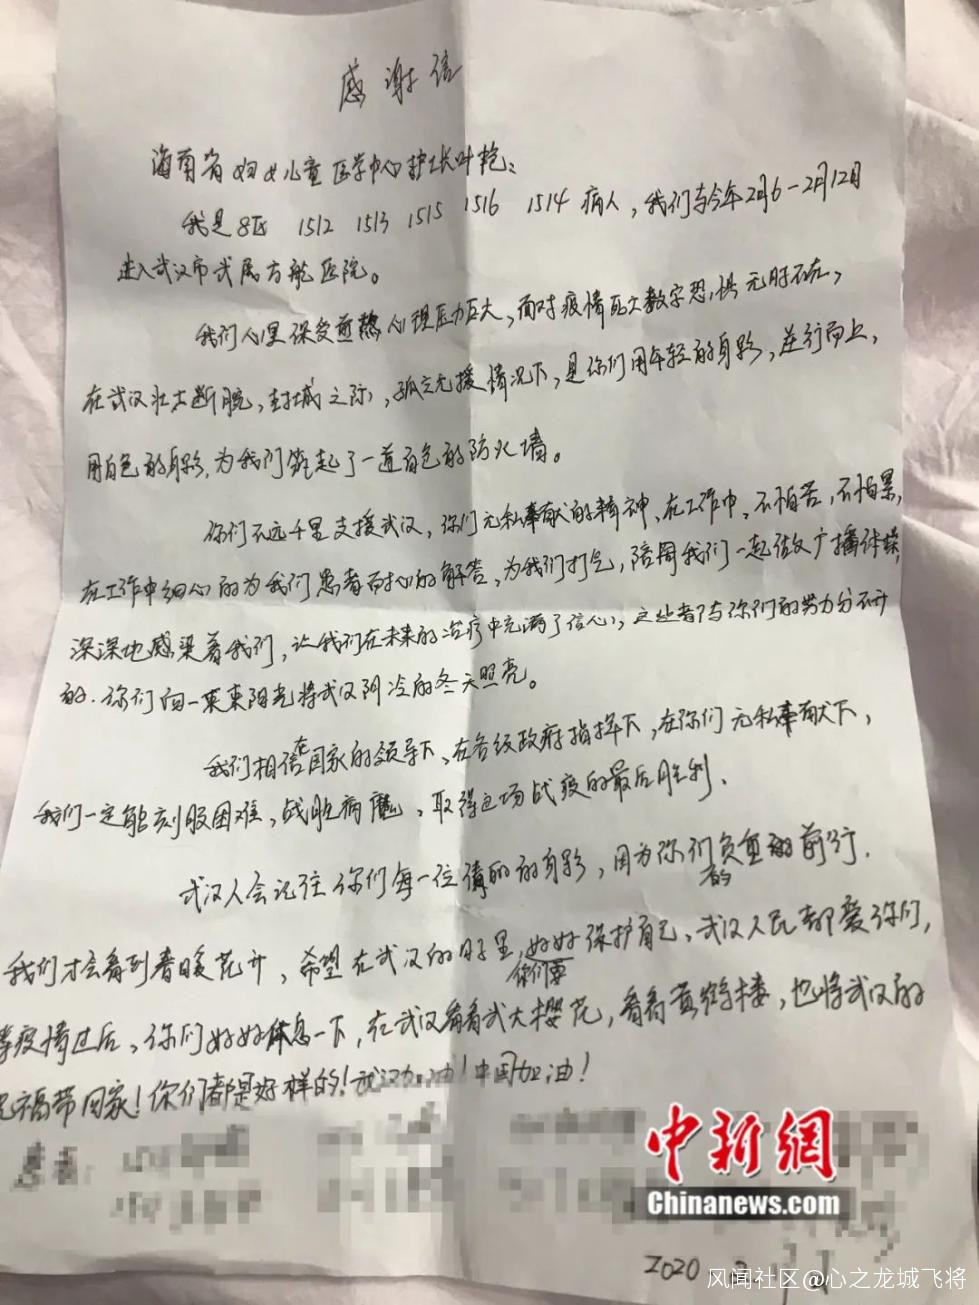 感谢信
海南省妇女儿童医学中心护士长叶艳:
我是8区 1512 1513 1515 1516 1514 病人，我们与今年2月6-2月12日
进入武汉市武展方舱医院。
我们心里保受煎熬心理压力巨大，面对疫情巨大数字恐惧无时不在，
在武汉壮士断腕，封城之际，孤立无援情况下，是你们用年轻的身影，逆行而上，
用白色的身影，为我们筑起了一道白色的防火墙。
你们不远千里支援武汉，你们无私奉献的精神、在工作中、不怕苦，不怕累，
在工作中细心的为我们患者耐心的解答，为我们打气，陪同我们一起做广播体操，
深深地感染着我们，让我们在未来的治疗中充满了信心，这些都与你们的努力分不开
的.你们向一束束阳光将武汉阴冷的冬天照亮。
我们相信在国家的领导下、在各级政府指挥下，在你们无私奉献下，
我们一定能刻服困难，战胜病魔，取得这场战疫的最后胜利.
武汉人会记住你们每一位倩丽的身影，因为你们的负重前行.
我们才会看到春暖花开，希望在武汉的日子里，你们要好好保护自己、武汉人民都爱你们，
等疫情过后，你们好好休息一下，在武汉看看武大樱花，看看黄鹤楼，也将武汉的
祝福带回家！你们都是好样的！武汉加油！中国加油！
患者:
2020
中新網
Chinanews.com
风闻社区@心之龙城飞将